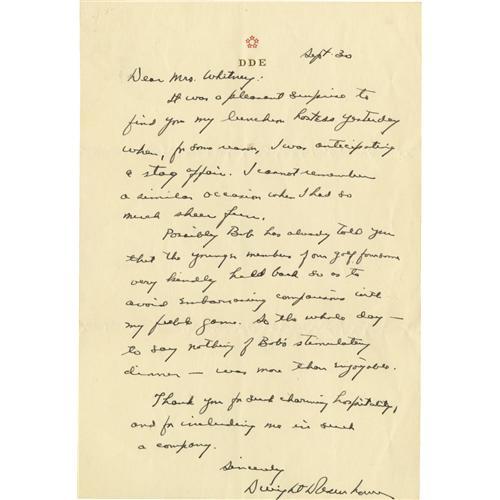 DDE
Sept 30
Dear Mrs. Whitney:
It was a pleasant surprise to
find you my luncheon hostess yesterday
when, for some reason, I was anticipating
a stag affair. I cannot remember
a similar occasion when I had so
much sheer fun.
Possibly Bob has already told you
that the younger members of our golf foursome
very kindly held back so as to
avoid embarrassing comparisons with
my feeble game. So the whole day —
to say nothing of Bob's stimulating
dinner — was more than enjoyable.
Thank you for such charming hospitality,
and for including me in such
a company.
Sincerely
Dwight D Eisenhower